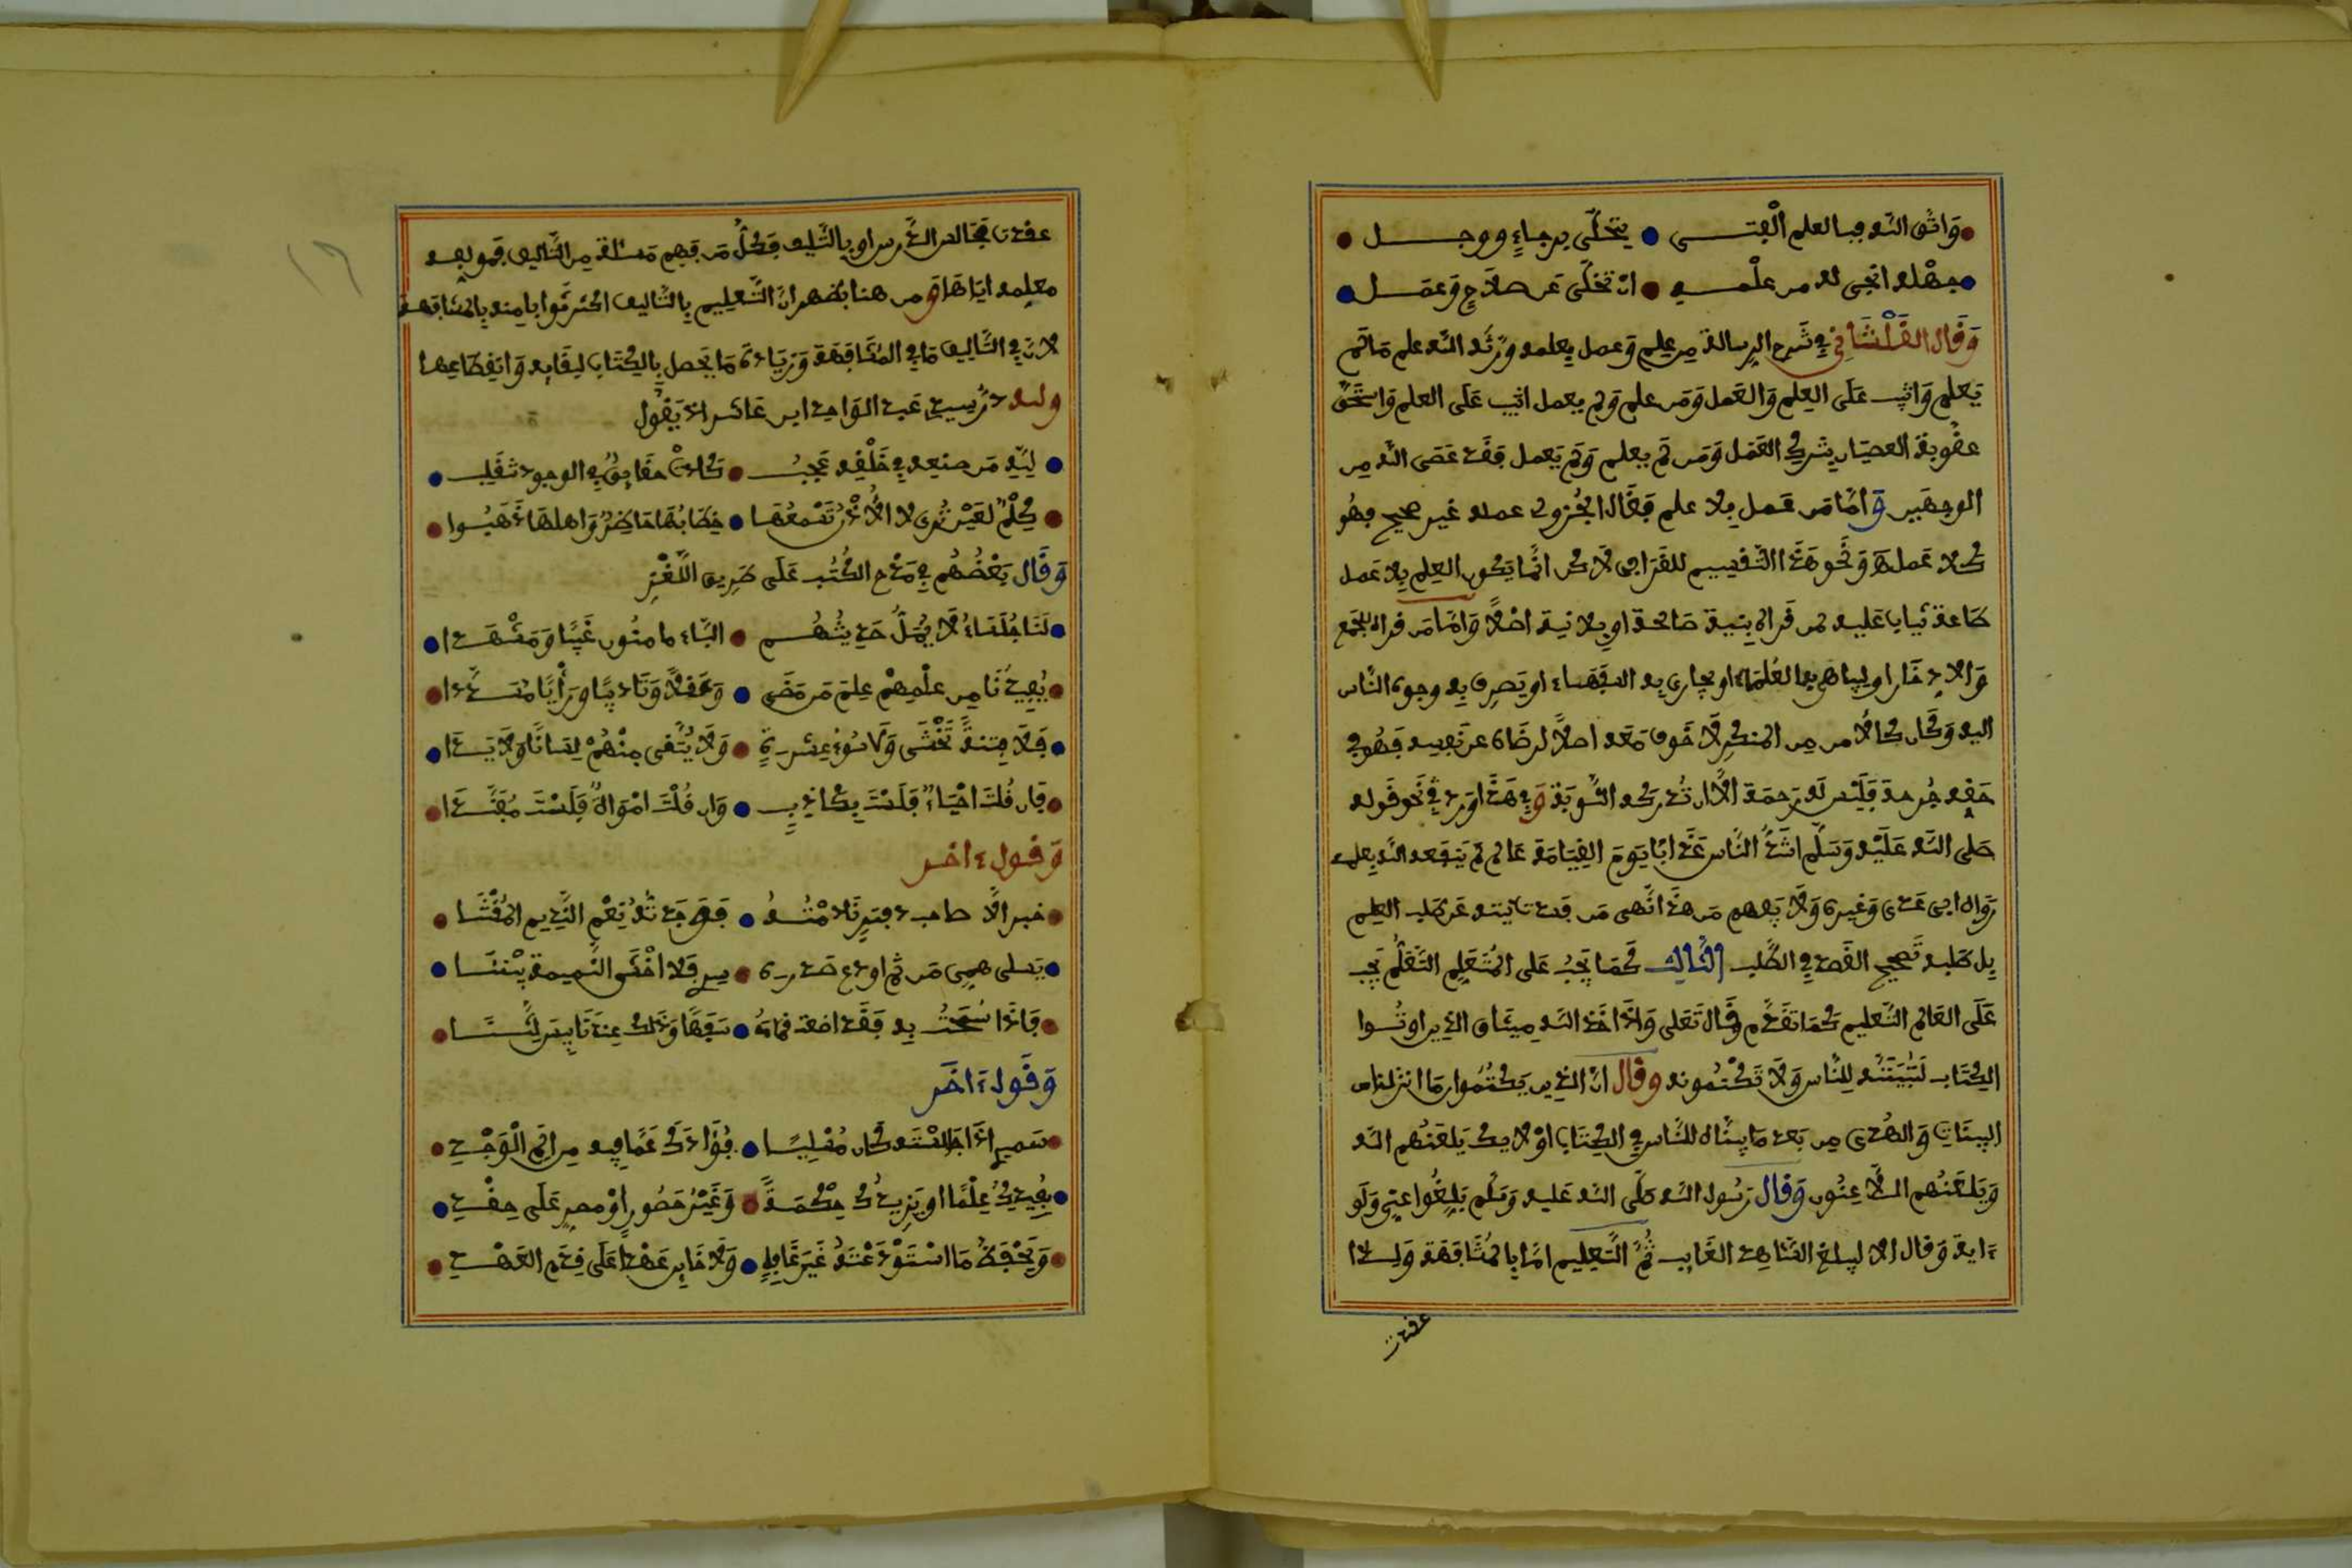 واتق الله فبالعلم الفتى يتحلى برجاء ووجل
فجهله انجى له من علمه ان تخلى عن صلاح وعمل
وقال القلشاني في شرح الرسالة من علم وعمل بعلمه ورثه الله علم ما لم
يعلم واثيب على العلم والعمل ومن علم ولم يعمل اثيب على العلم واستحق
عقوبة العصيان بترك العمل ومن لم يعلم ولم يعمل فقد عصى الله من
الوجهين واما من عمل بلا علم فقال الجزولي عمله غير صحيح فهو
كلا عمل ونحو هذا التقسيم للقرافي لاكن انما يكون العلم بلا عمل
طاعة يثاب عليه لمن قراه بنية صالحة او بلا نية اصلا واما من قراه للجمع
والادخار او ليباهي به العلماء او يجاري به الفقهاء او يصرف به وجوه الناس
اليه وكان كالامن من المنكر لا خوف معه اصلا لرضاه عن نفسه فهو في
حقه جرحة فليس له رحمة الا ان تدركه التوبة وفي هذا ورد في نحو قوله
صلى الله عليه وسلم اشد الناس عذابا يوم القيامة عالم لم ينفعه الله بعلمه
رواه ابن عدي وغيره ولا يفهم من هذا نهي من فسدت نيته عن طلب العلم
بل طلبه تصحيح القصد في الطلب الثالث كما يجب على المتعلم التعلم يجب
على العالم التعليم كما تقدم وقال تعلى واذ اخذ الله ميثاق الذين اوتوا
الكتاب لتبيننه للناس ولا تكتمونه وقال ان الذين يكتمون ما انزلنا من
البينات والهدى من بعد ما بيناه للناس في الكتاب اولايك يلعنهم الله
ويلعنهم اللاعنون وقال رسول الله صلى الله عليه وسلم بلغوا عني ولو
ءاية وقال الا ليبلغ الشاهد الغايب ثم التعليم اما بالمشافهة ولذا
عقدت
عقدت مجالس الدرس او بالتاليف فكل من فهم مسئلة من التاليف فمولفه
معلمه اياها ومن هنا يظهر ان التعليم بالتاليف اكثر ثوابا منه بالمشافهة
لان في التاليف ما في المشافهة وزيادة ما يحصل بالكتاب لبقايه وانقطاعها
ولله در سيدي عبد الواحد ابن عاشر اذ يقول
لله من صنعه في خلقه عجب كادت حقايق في الوجود تنقلب
كلم لغير ثرى لا الاذن تسمعها خطابها حاضر واهلها ذهبوا
وقال بعضهم في مدح الكتب على طريق اللغز
لنا جلساء لا يمل حديثهم الباء مامنون غيبا ومشهدا
يفيدوننا من علمهم علم من مضى وعقلا وتاديبا ورأيا مسددا
فلا فتنة تخشى ولا سوء عشرة ولا يتقى منهم لسانا ولا يدا
فان قلت احياء فلست بكاذب وان قلت امواة فلست مفندا
وقول ءاخر
خير الاصاحب دفتر نادمته فوجدته نعم النديم المقتنى
يسلي همي من ثم اودع صدره سري فلا اخشى النميمة بيننا
فاذا سمحت به فقد اضعت ذمامه سفها وذلك عندنا بيس الثنا
وقول ءاخر
سمير اذا جالسته كان مسليا فؤادك عما فيه من الم الوجد
يفيدك علما او يزيدك حكمة وغير حسود او مصر على حقد
ويحفظ ما استودعته غير غافل ولا خاين عهدا على قدم العهد